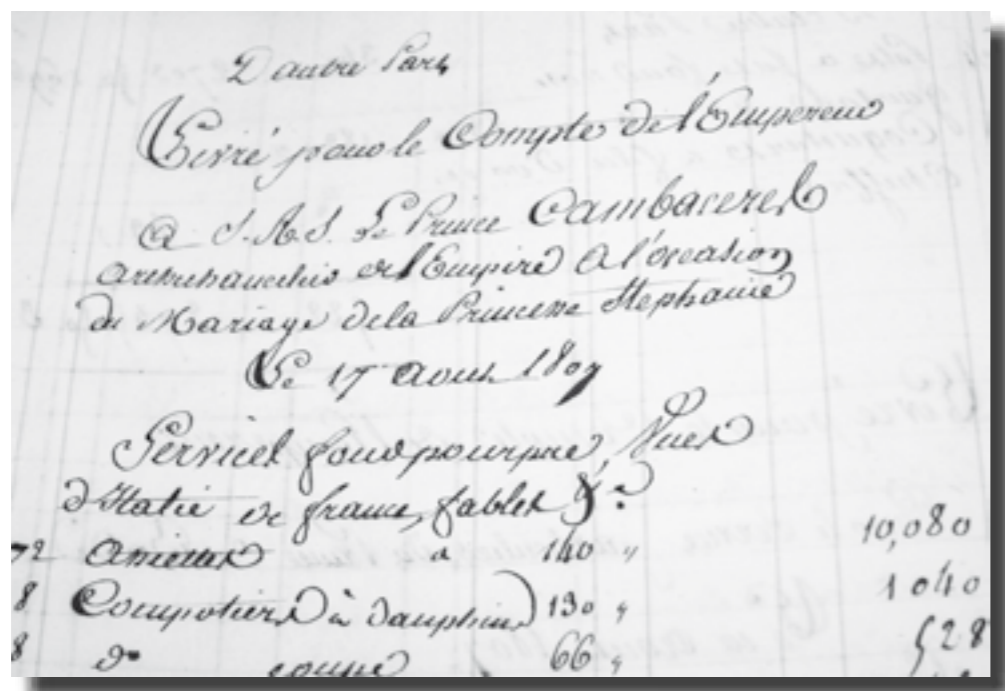 D'autre Part
Livré pour le Compte de l'Empereur
A S. A. S. Le Prince Cambacerès
archichancelier de l'Empire A l'occasion
du Mariage de la Princesse Stephanie
Le 17 Aout 1807
Service fond pourpre, Vues
d'Italie de france, fables &c.
72 assiettes à 140 " 10,080
8 Compotiers à dauphins 130 " 1040
8 do coupe 66 " 528